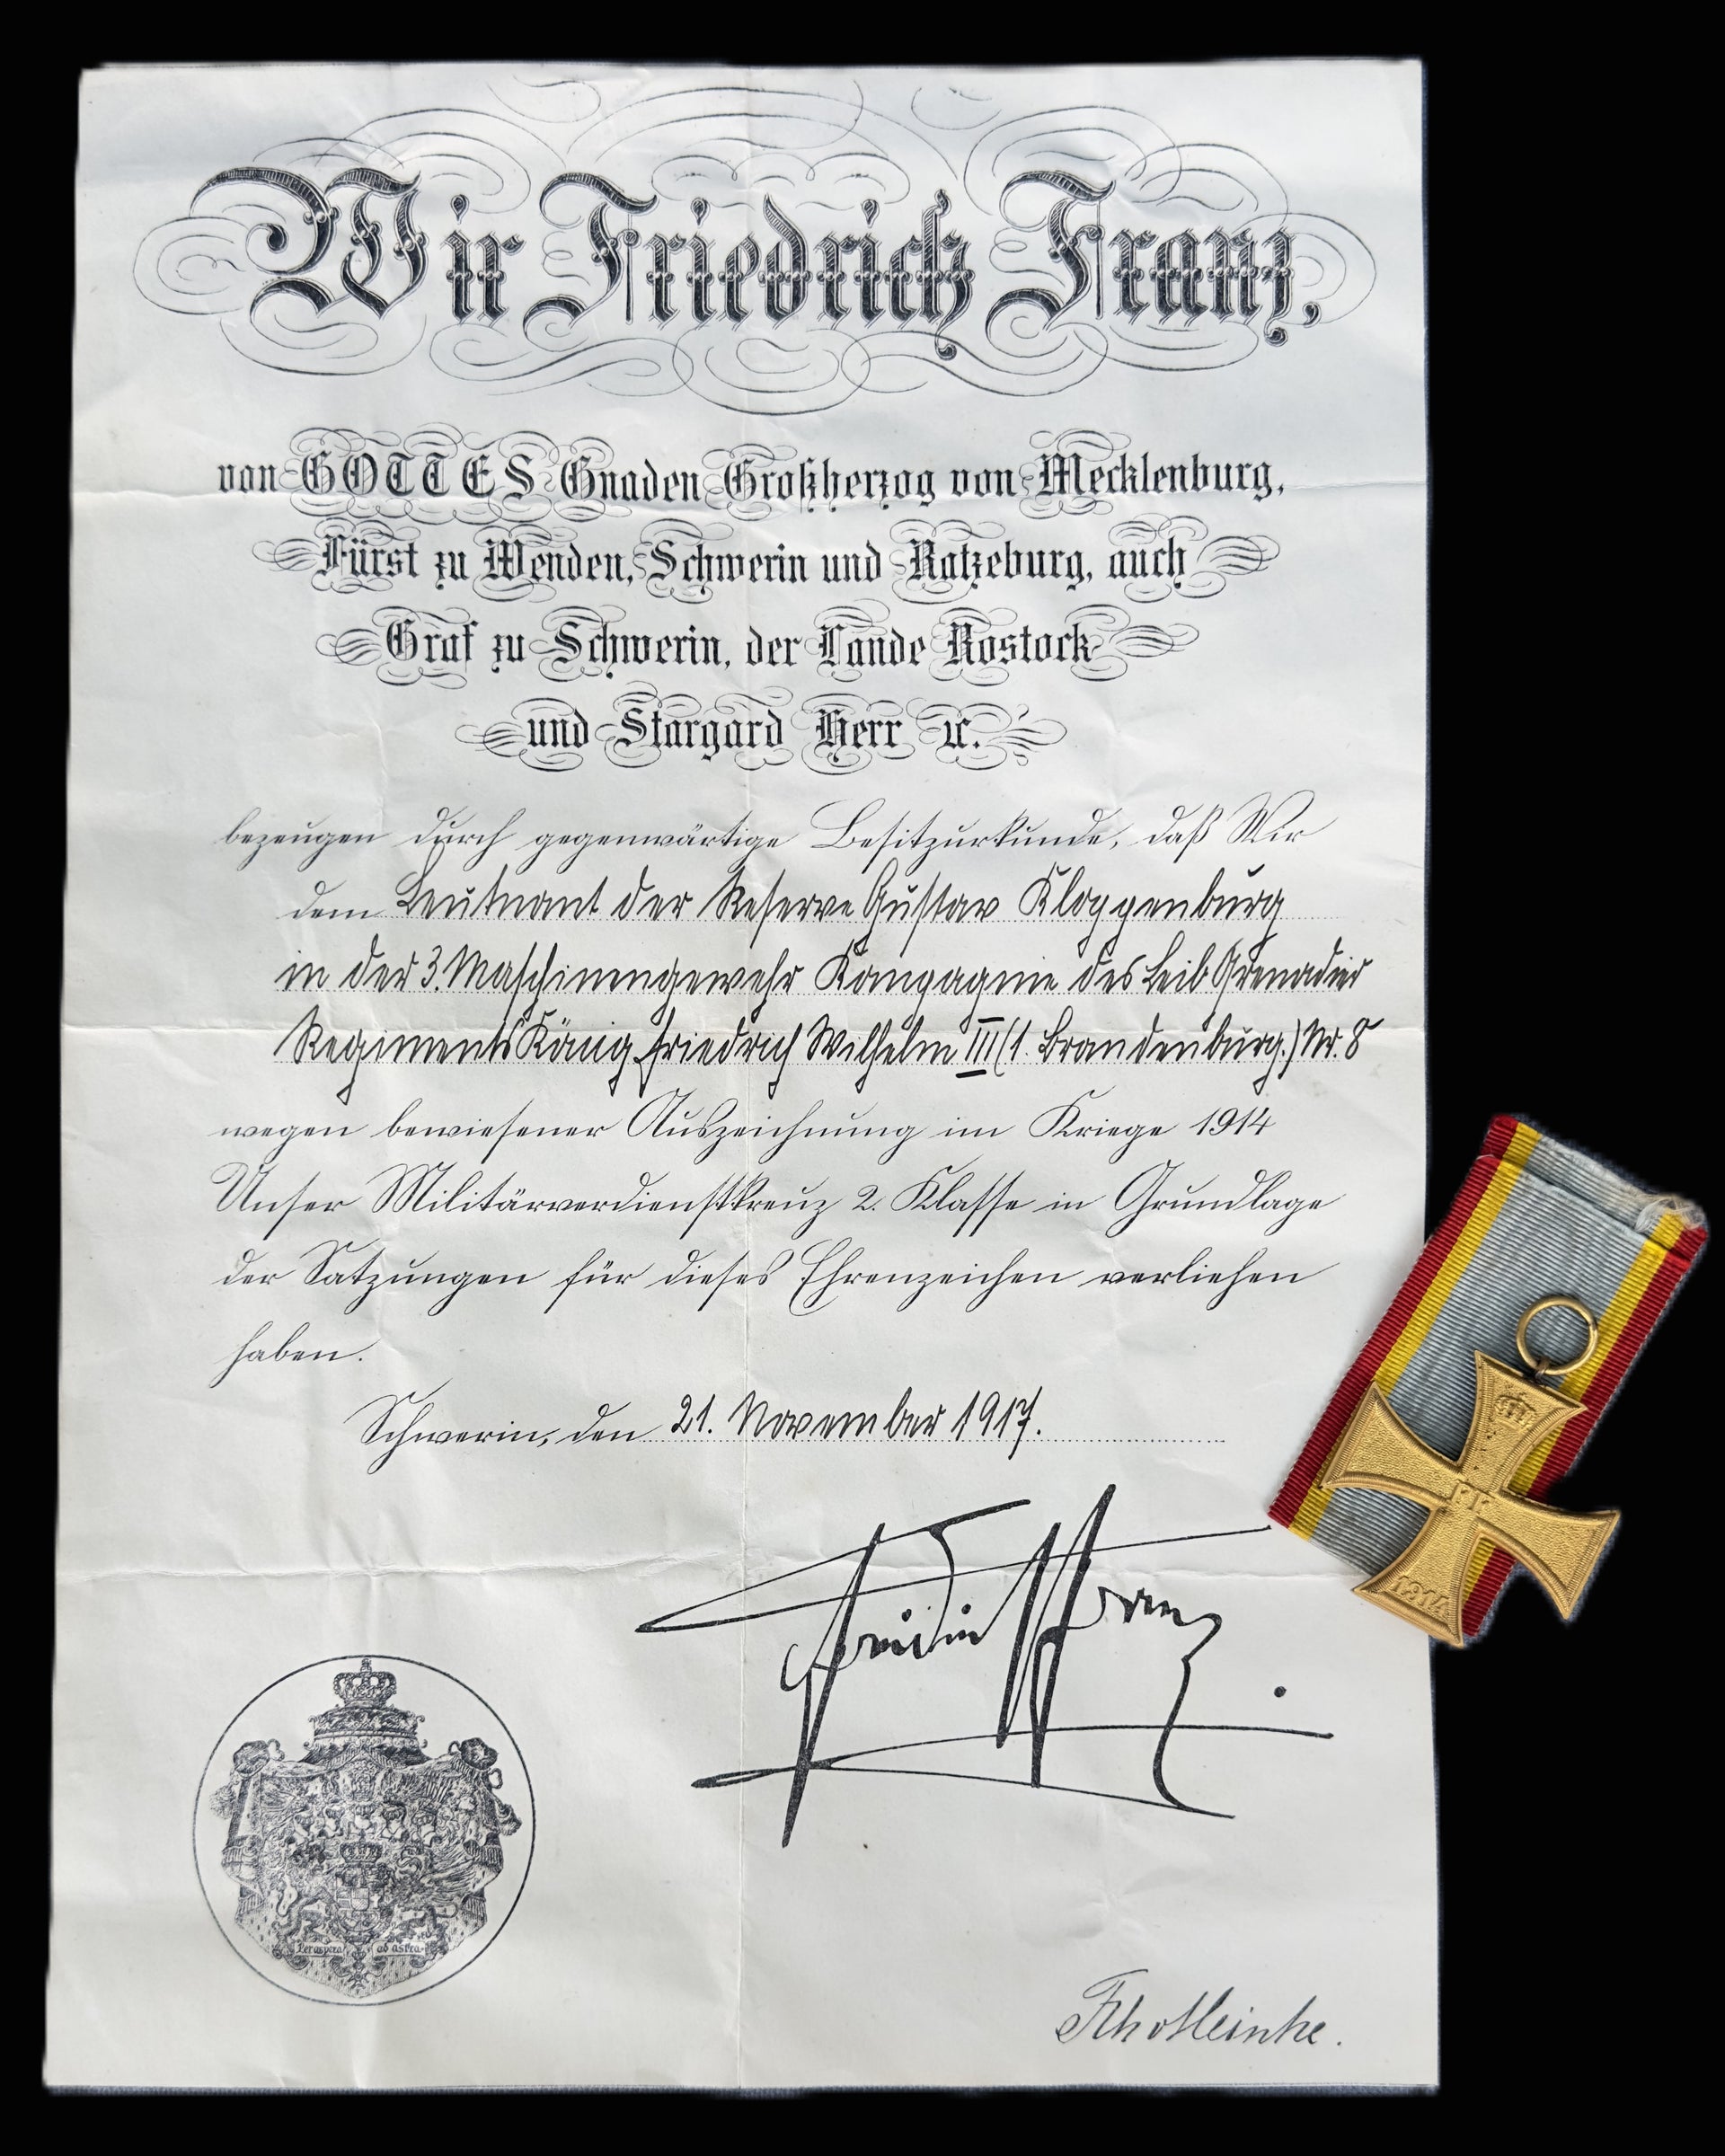 Wir Friedrich Franz,
von GOTTES Gnaden Großherzog von Mecklenburg,
Fürst zu Wenden, Schwerin und Ratzeburg, auch
Graf zu Schwerin, der Lande Rostock
und Stargard Herr ꝛc.
bezeugen durch gegenwärtige Besitzurkunde, daß Wir
dem Leutnant der Reserve Gustav Kloppenburg
in der 3. Maschinengewehr Kompagnie des Leib Grenadier
Regiments König Friedrich Wilhelm III (1. Brandenburg.) Nr. 8
wegen bewiesener Auszeichnung im Kriege 1914
Unser Militärverdienstkreuz 2. Klasse in Grundlage
der Satzungen für dieses Ehrenzeichen verliehen
haben.
Schwerin, den 21. November 1917.
Friedrich Franz
Per aspera ad astra
FF
1914